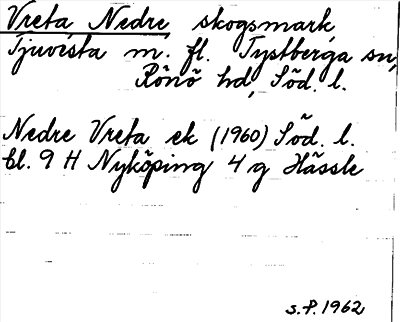 Vreta Nedre, skogsmark,
Tjuvista m. fl. Tystberga sn,
Rönö hd, Söd. l.
Nedre Vreta ek (1960) Söd. l.
bl. 9 H Nyköping 4 g Hässle
s.P. 1962